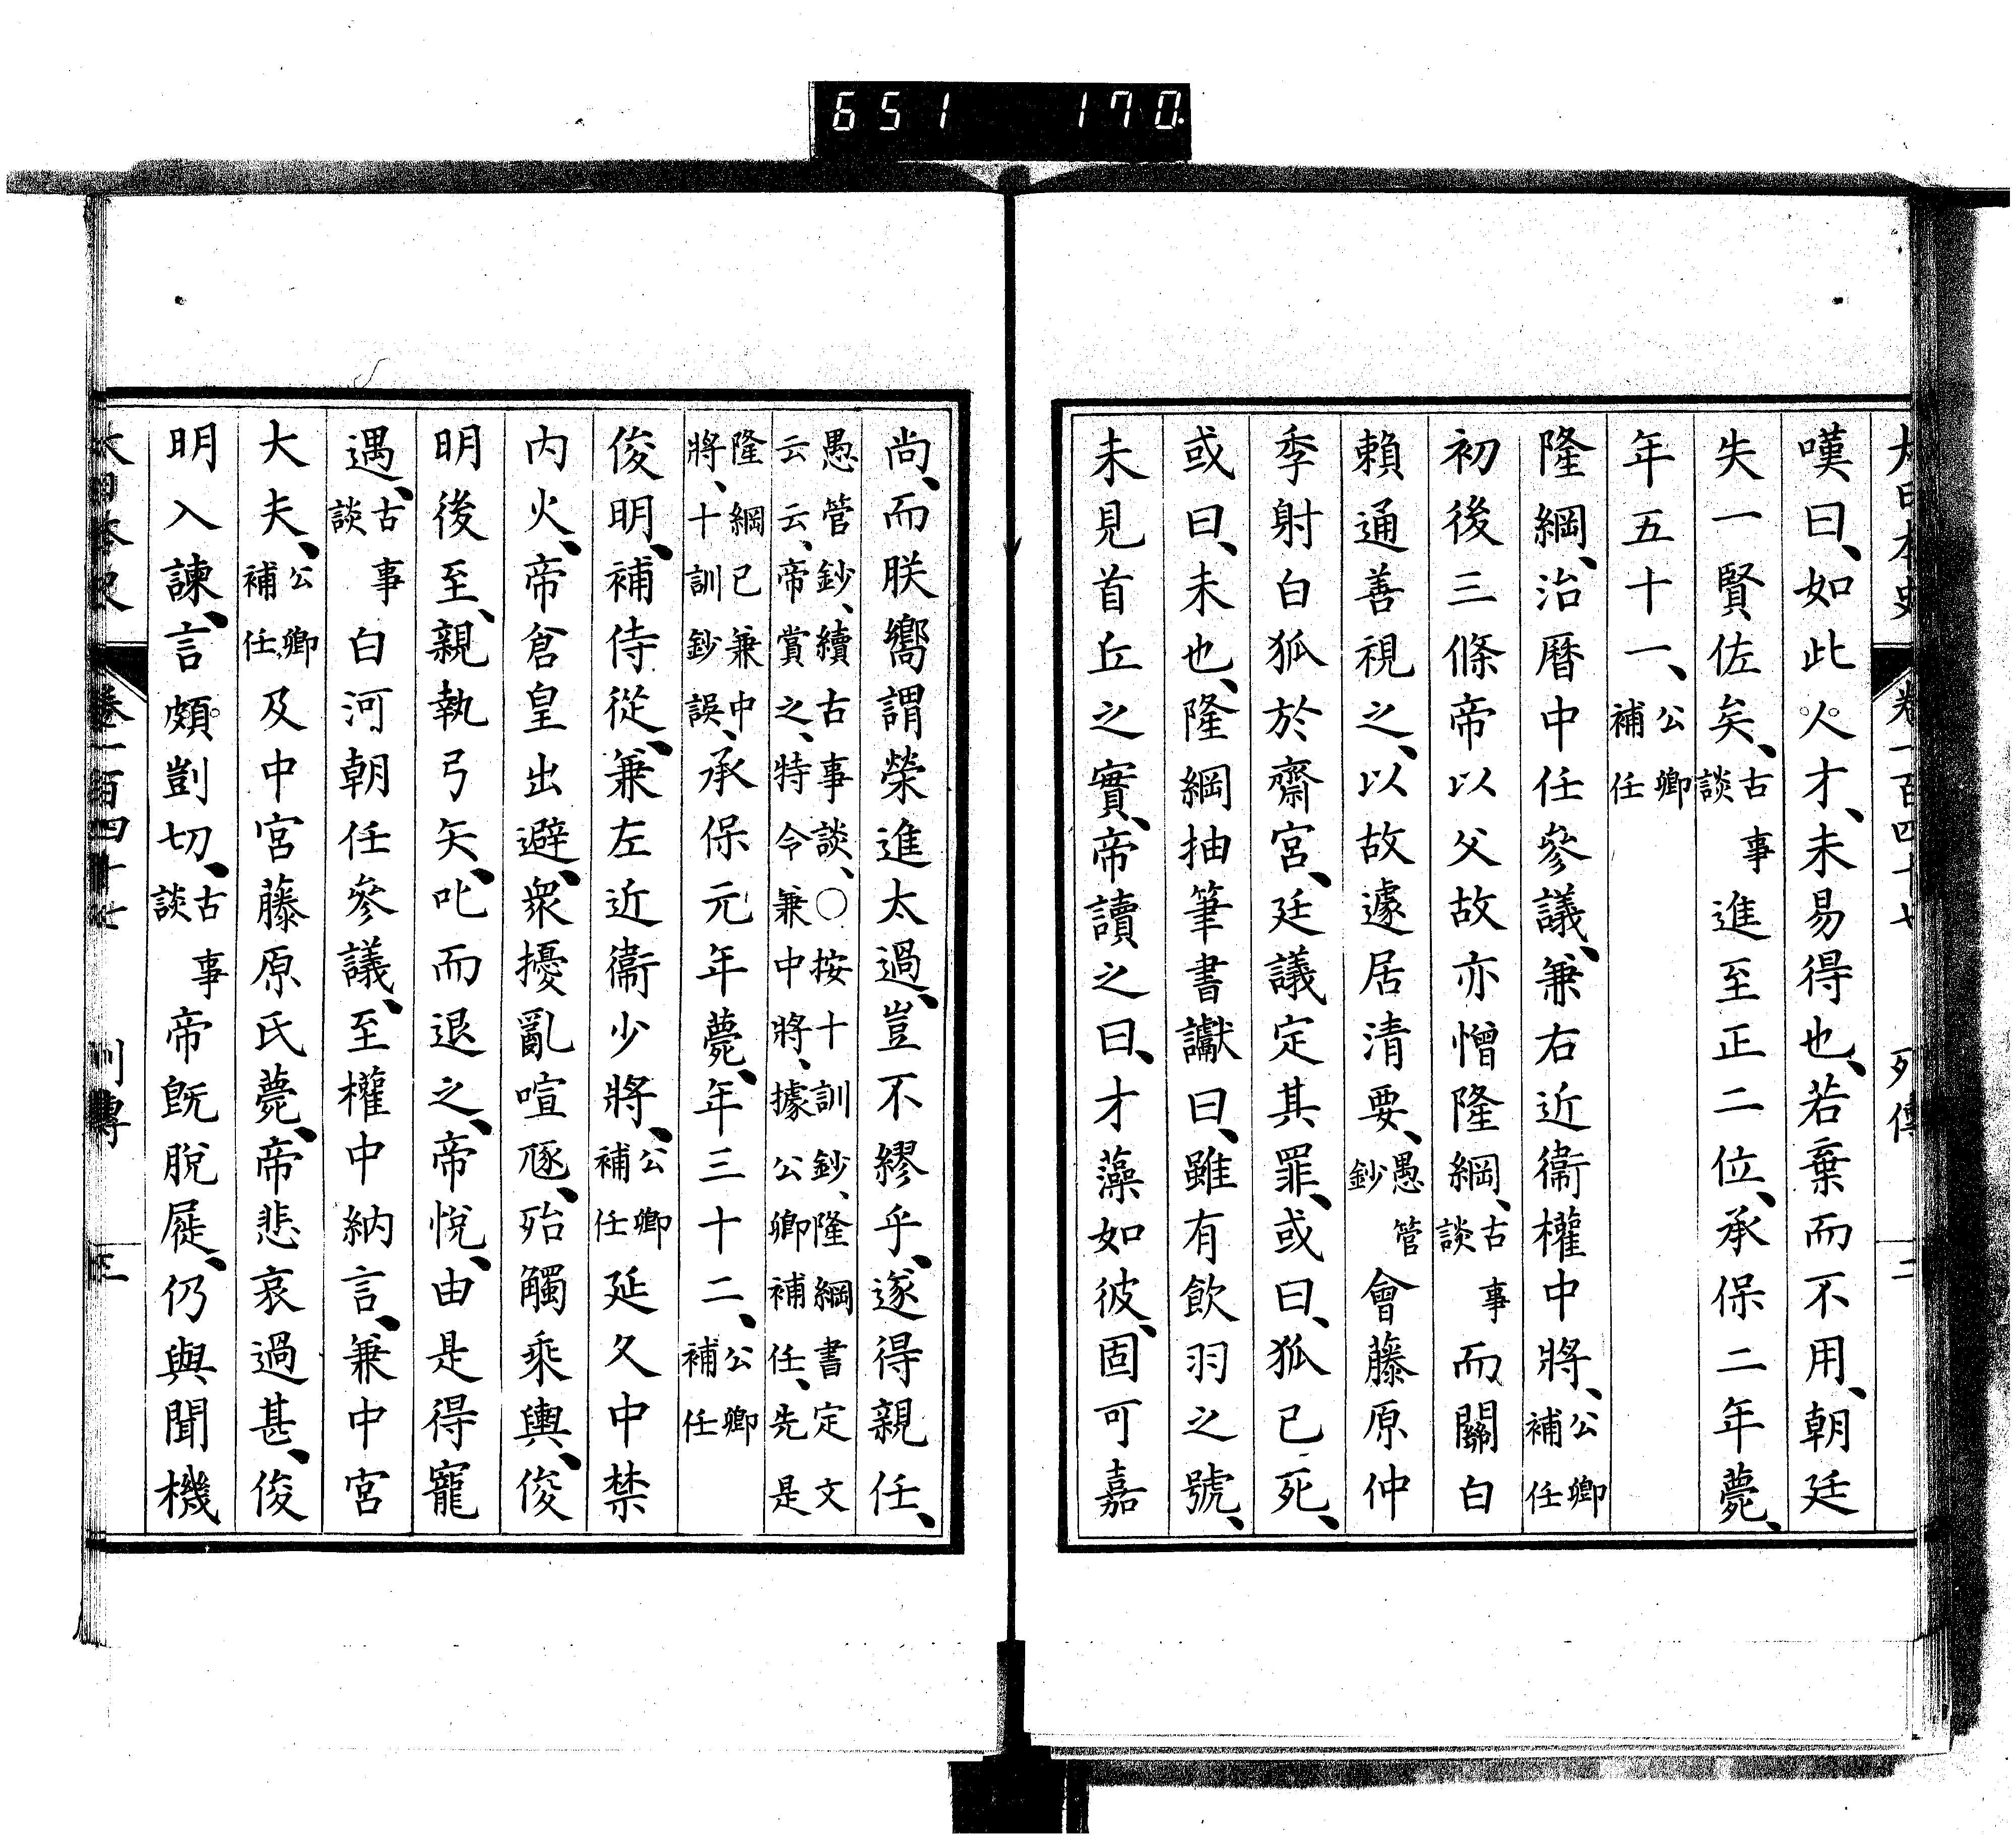 651 170
大日本史 卷一百四十七 列傳 二
嘆曰、如此人才、未易得也、若棄而不用、朝廷
失一賢佐矣、古事談進至正二位、承保二年薨、
年五十一、公卿補任
隆綱、治曆中任參議、兼右近衞權中將、公卿補任
初後三條帝以父故亦憎隆綱、古事談而關白
賴通善視之、以故遽居清要、愚管鈔會藤原仲
季射白狐於齋宮、廷議定其罪、或曰、狐已死、
或曰、未也、隆綱抽筆書讞曰、雖有飮羽之號、
未見首丘之實、帝讀之曰、才藻如彼、固可嘉
尚、而朕嚮謂榮進太過、豈不繆乎、遂得親任、
愚管鈔、續古事談、○按十訓鈔、隆綱書定文
云云、帝賞之、特令兼中將、據公卿補任、先是
隆綱已兼中將、十訓鈔誤、承保元年薨、年三十二、公卿補任
俊明、補侍從、兼左近衞少將、公卿補任延久中禁
內火、帝倉皇出避、衆擾亂喧豗、殆觸乘輿、俊
明後至、親執弓矢、叱而退之、帝悅、由是得寵
遇、古事談白河朝任參議、至權中納言、兼中宮
大夫、公卿補任及中宮藤原氏薨、帝悲哀過甚、俊
明入諫、言頗剴切、古事談帝旣脫屣、仍與聞機
大日本史 卷一百四十七 列傳 三